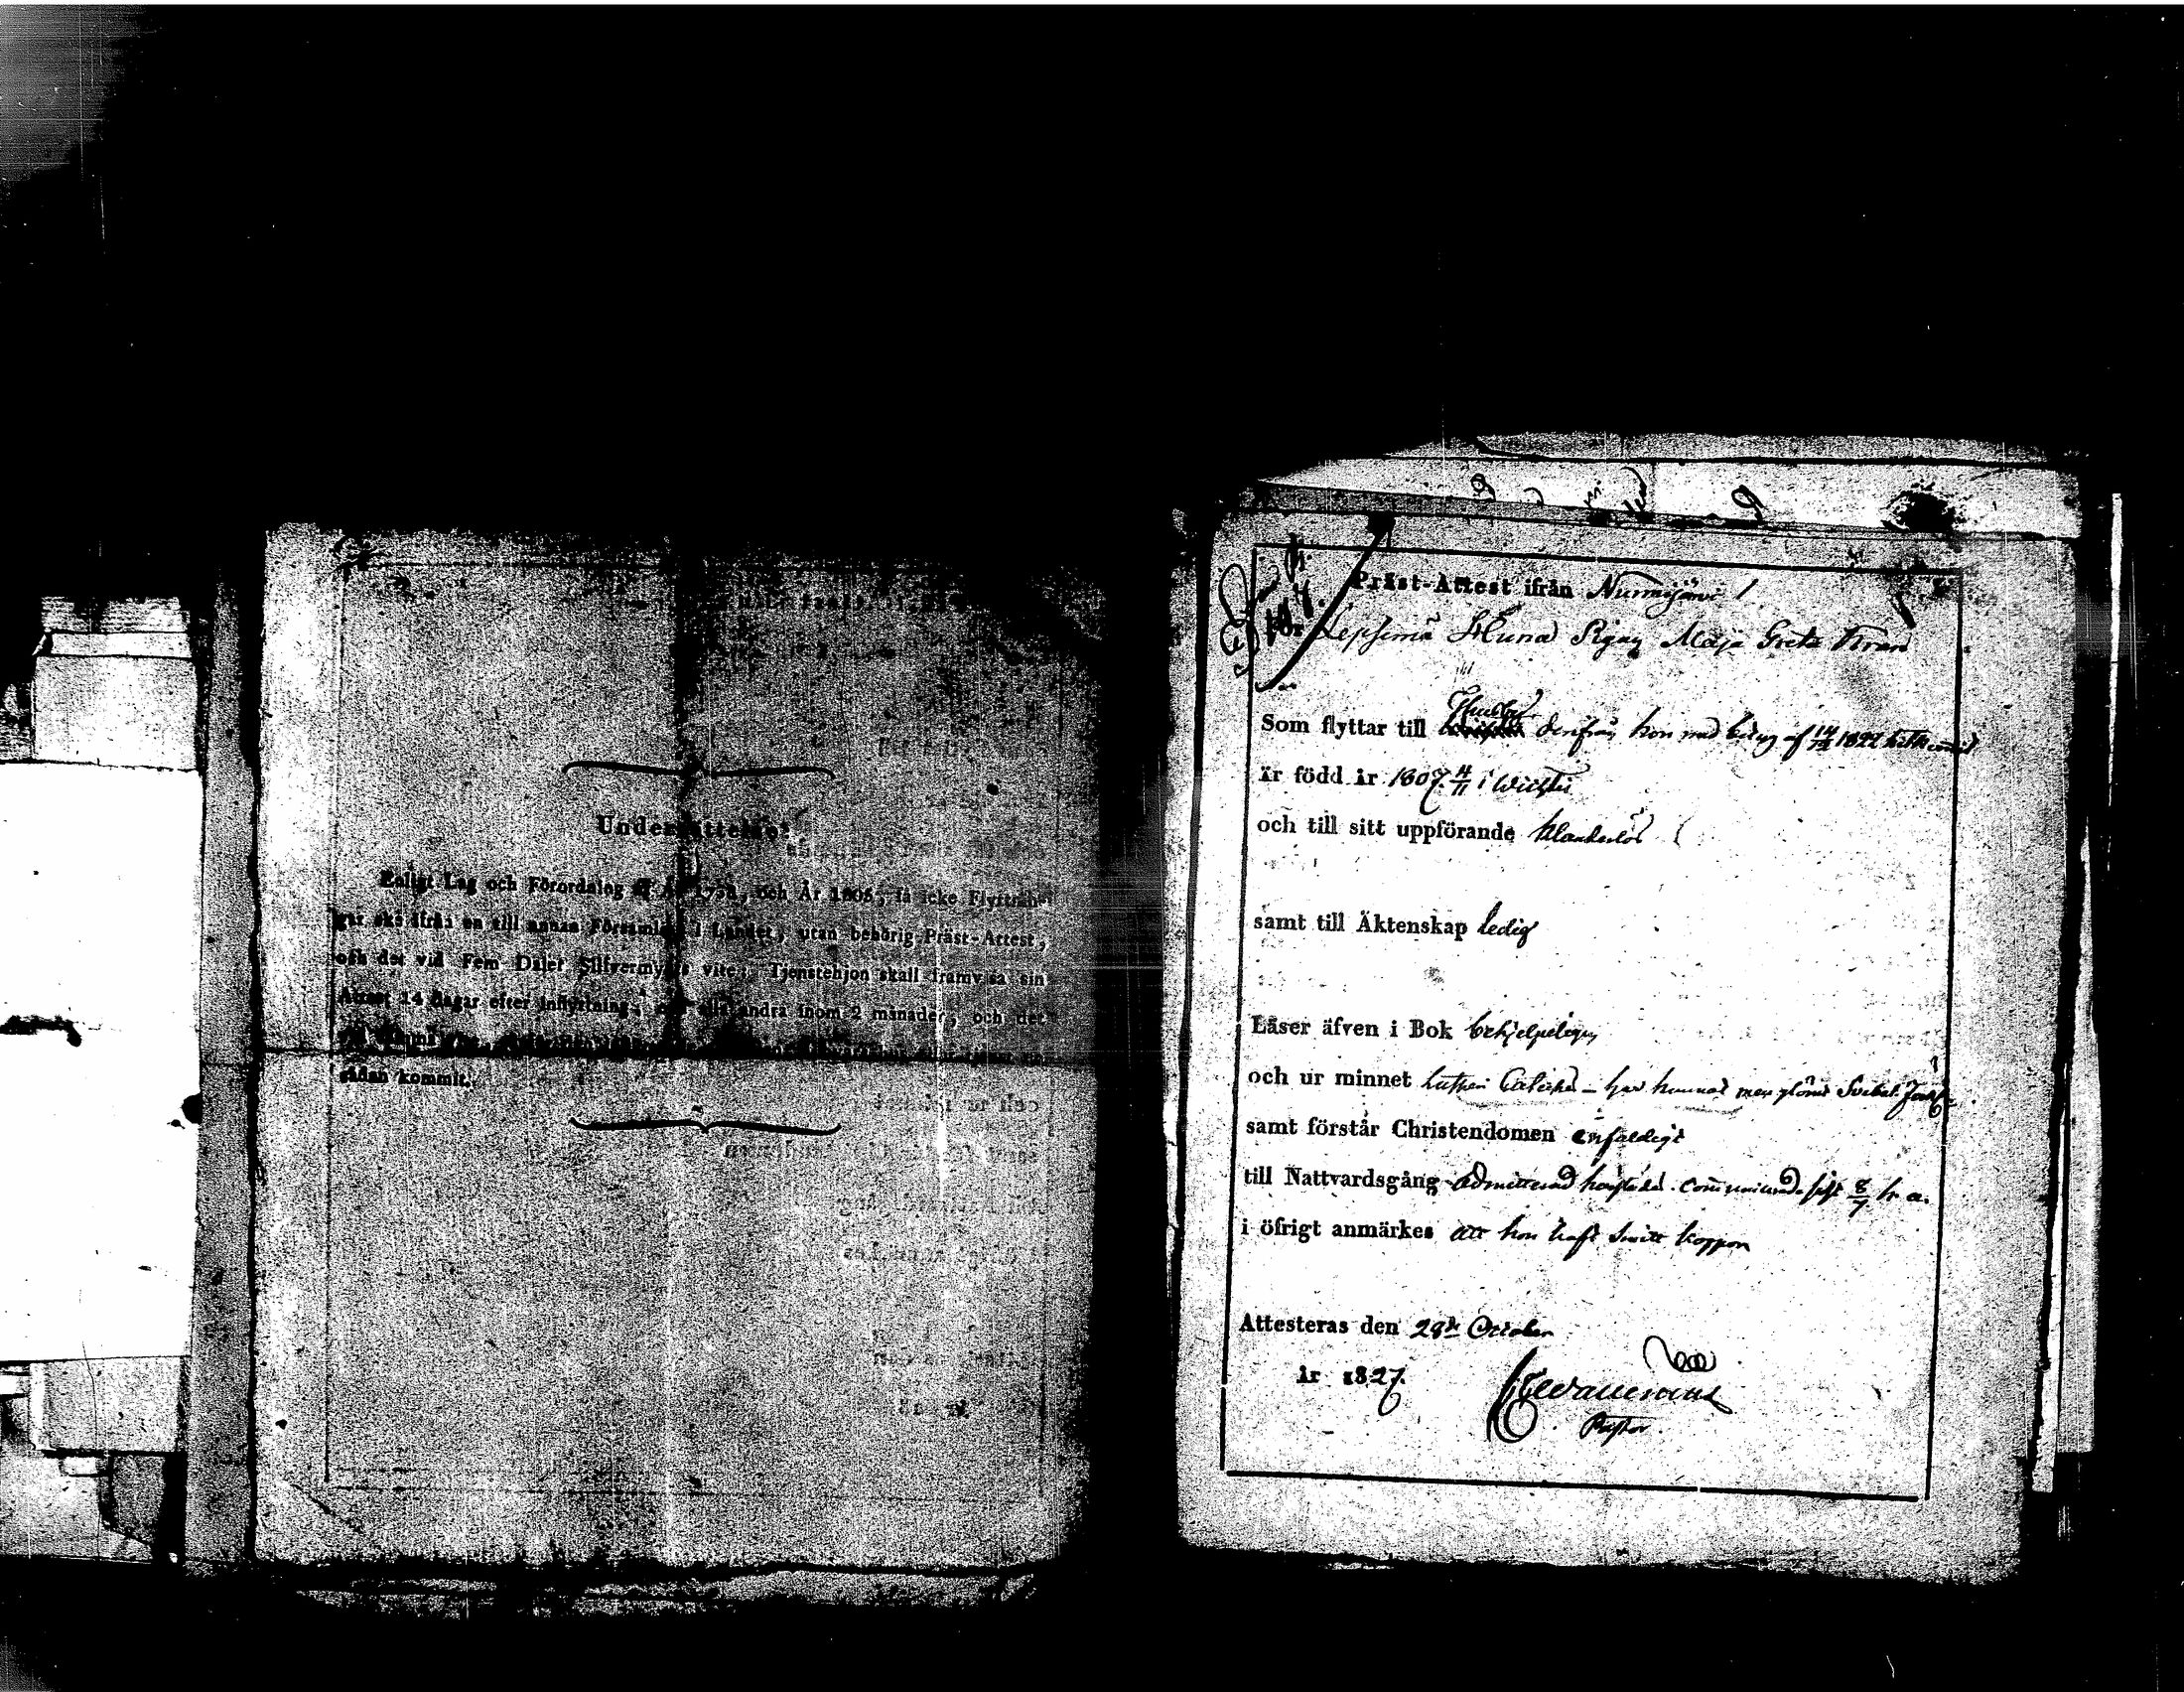 Underrättelse:
Enligt Lag och Förordning af År 1738, och År 1806, få icke Flyttnin-
gar ske ifrån en till annan Församling i Landet, utan behörig Präst-Attest,
och det vid Fem Daler Silfvermynts vite; Tjenstehjon skall framvisa sin
Attest 14 dagar efter inflyttning, och alla andra inom 2 månader, och det
sådan kommit.
Präst-Attest ifrån Nurmijärvi
För Lepsemä Pigan Maja Greta
Som flyttar till Thusby derifrån hon med betyg af 1822
är född år 1807 4/11 i Wichtis
och till sitt uppförande klanderlös
samt till Äktenskap ledig
Läser äfven i Bok behjelpeligen
och ur minnet Lutheri har kunnat men glömt Svebel.
samt förstår Christendomen enfaldigt
till Nattvardsgång admitterad sist 8/7 h. a.
i öfrigt anmärkes att hon haft koppor
Attesteras den 28 October
år 1827.
Pastor